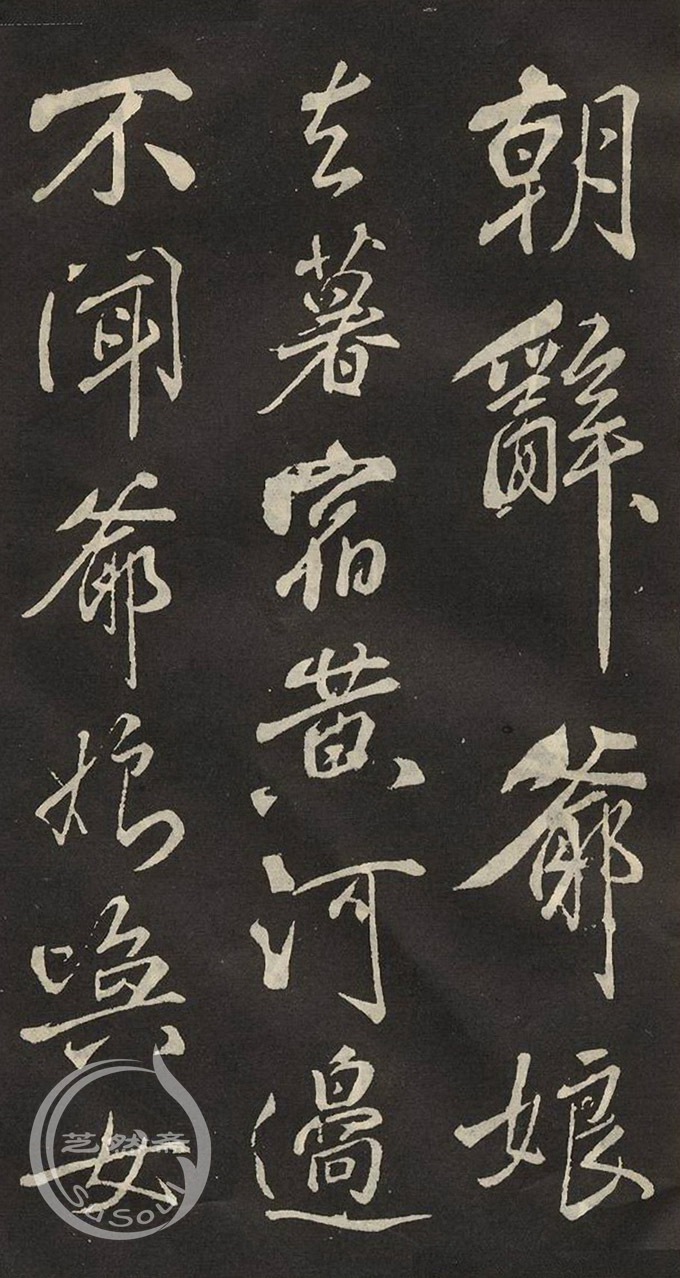 朝辭爺娘
去暮宿黄河邊
不聞爺娘喚女
芝然斋
SaSoul